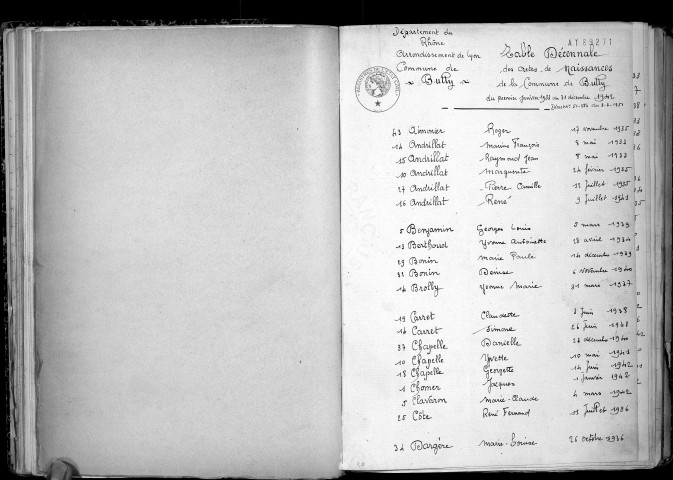 Département du
Rhône
Arrondissement de Lyon
Commune de
Bully
AY89271
Table Décennale
des actes de Naissances
de la Commune de Bully
du premier janvier 1933 au 31 décembre 1942
43 Aimonier Roger 17 novembre 1935
14 Andrillat Marius François 8 mai 1933
15 Andrillat Raymond Jean 8 mai 1933
10 Andrillat Marguerite 24 février 1935
27 Andrillat Pierre Camille 12 juillet 1935
16 Andrillat René 9 juillet 1941
5 Benjamin Georges Louis 5 mars 1939
13 Berthoud Yvonne Antoinette 28 avril 1934
29 Bonin Marie Paule 14 décembre 1939
32 Bonin Denise 6 novembre 1940
14 Brolly Yvonne Marie 31 mars 1937
19 Carret Claudette 8 juin 1938
14 Carret Simone 26 juin 1941
37 Chapelle Danielle 28 décembre 1940
10 Chapelle Yvette 10 mai 1941
18 Chapelle Georgette 14 juin 1942
1 Chomer Jacques 1 janvier 1942
5 Claveron Marie-Claude 4 mars 1942
25 Côte René Fernand 11 juillet 1936
34 Dargère Marie-Louise 26 octobre 1936